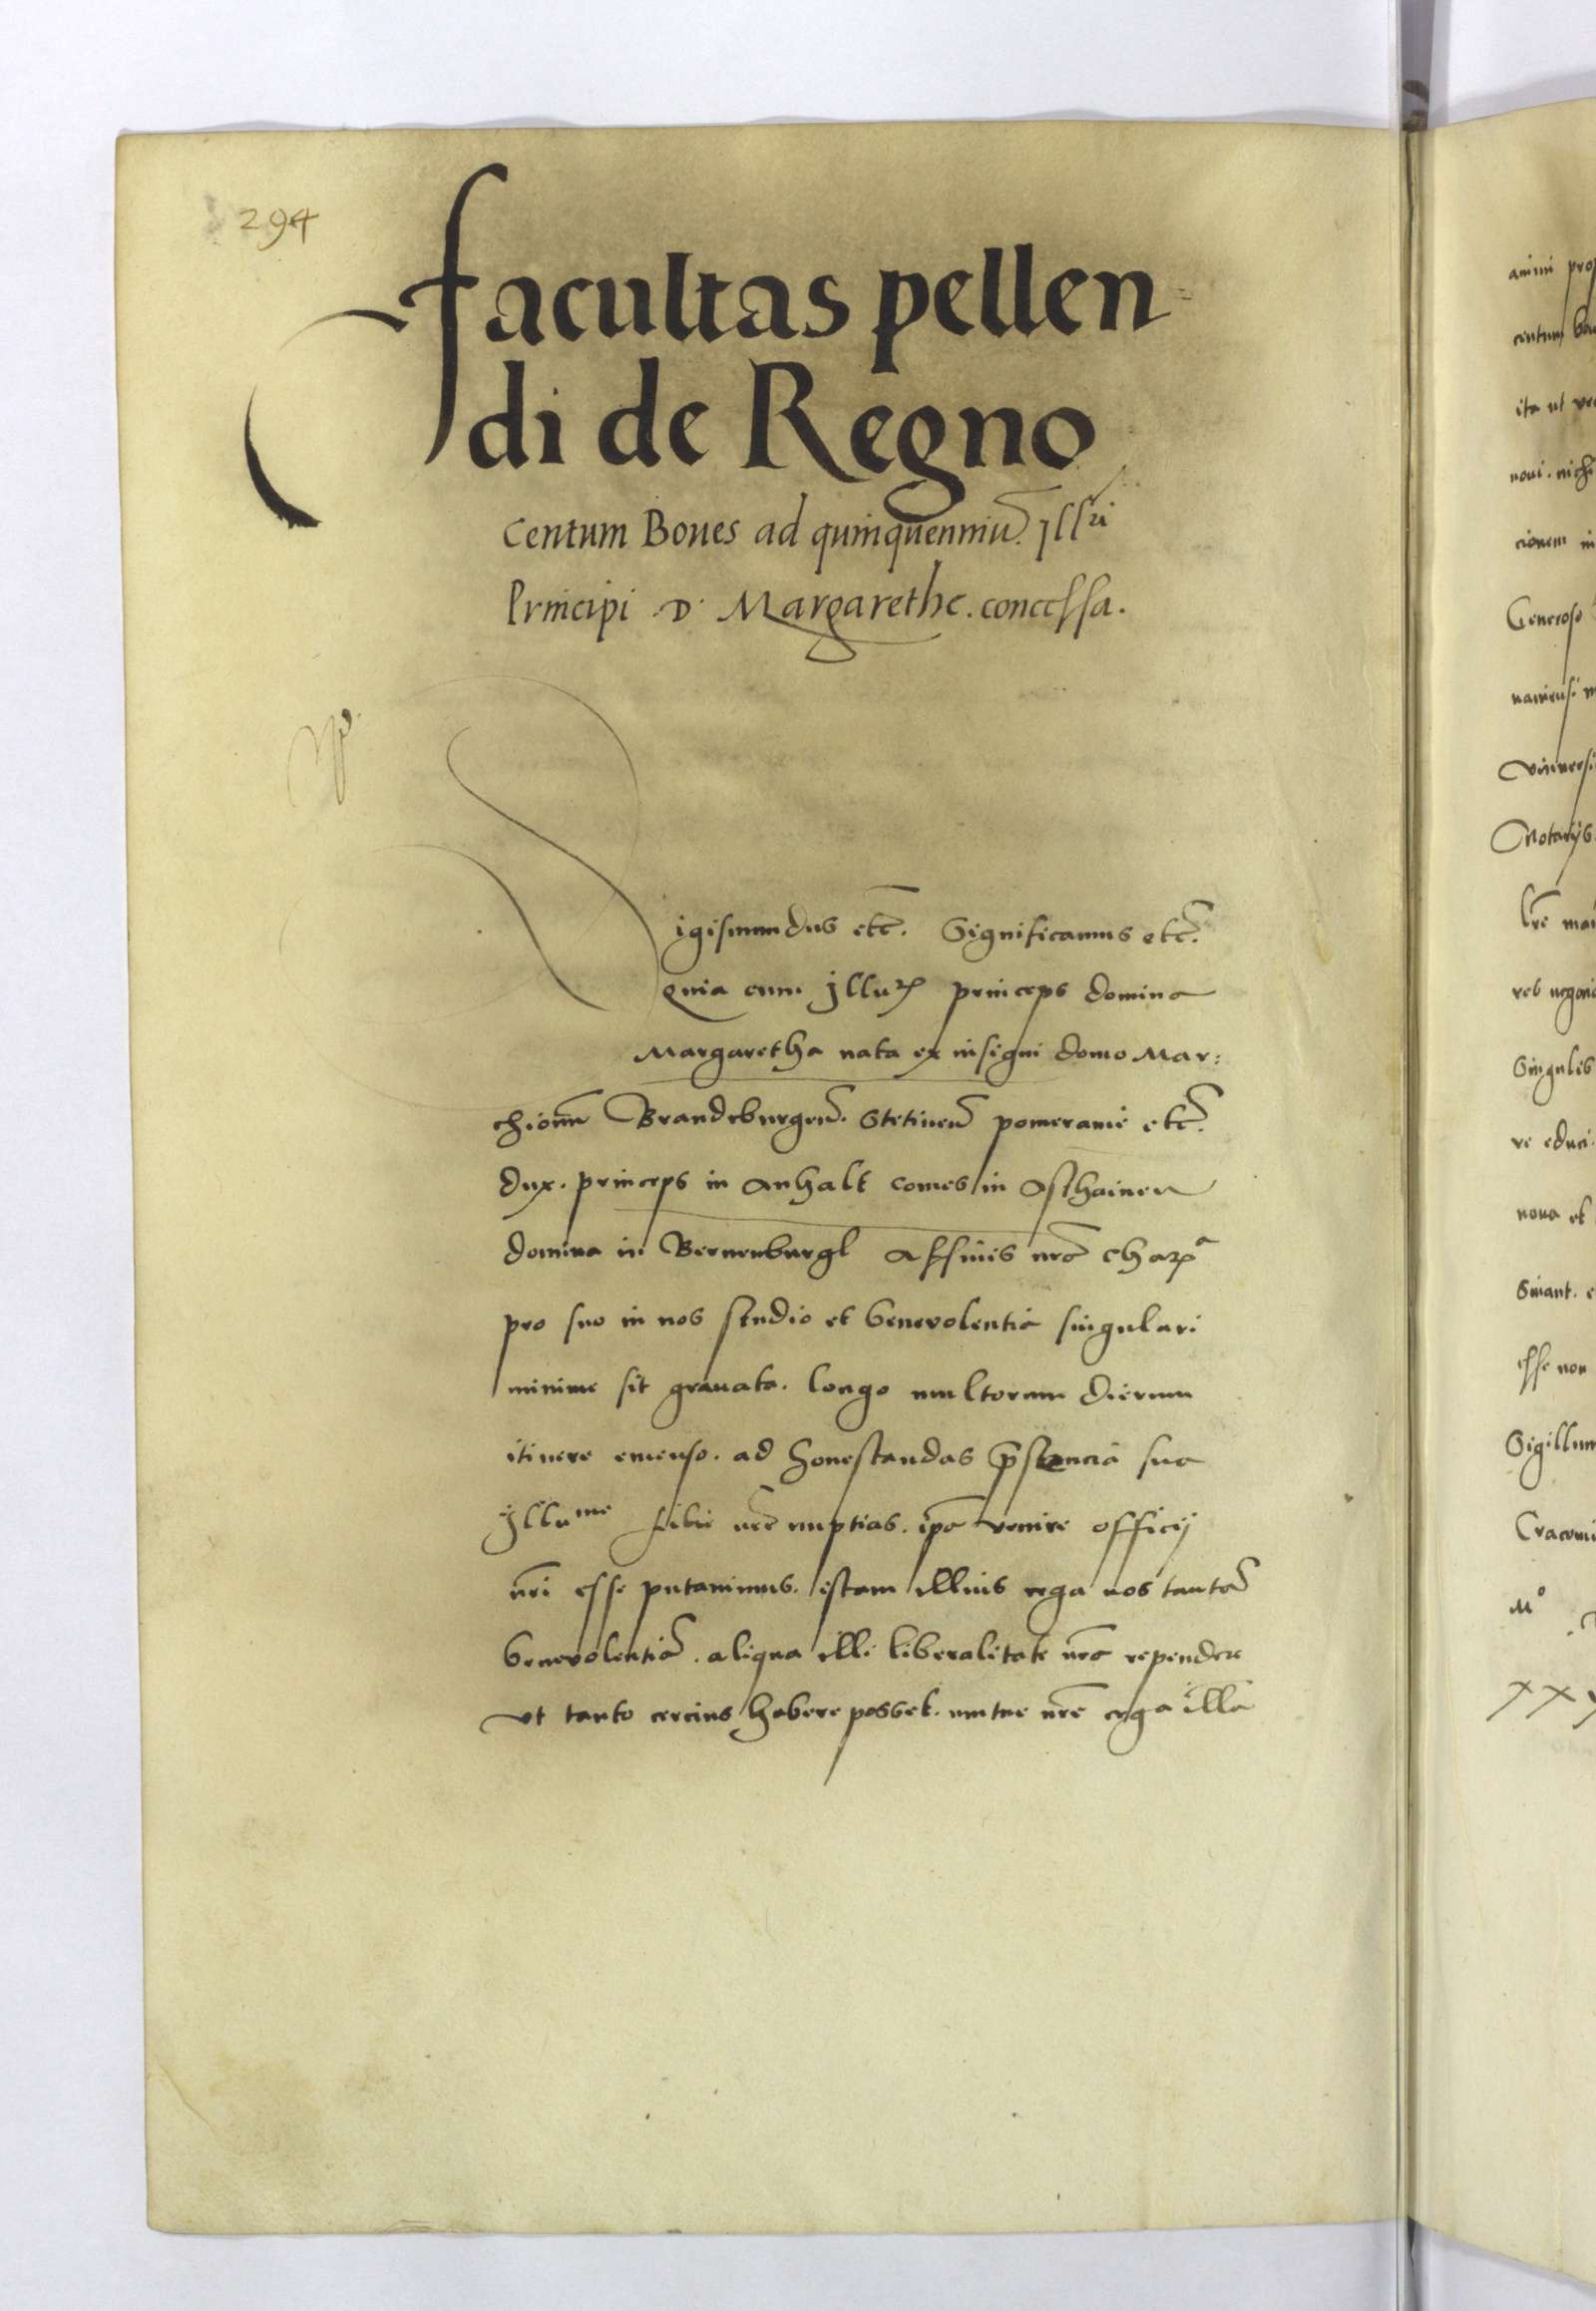 294
facultas pellen-
di de Regno
Centum Boues ad quinquenniu. Illri
Principi .D. Margarethe. concessa.
Sigismundus etc. Significamus etc.
Quia cum Illu princeps domina
Margaretha nata ex insigni domo Mar:
chionu Brandeburgen. Stetinen pomeranie etc.
dux. princeps in anhalt comes in Aschainen
domina in Bernenburgk Affinis nra char
pro suo in nos studio et benevolentia singulari
minime sit grauata. longo multorum dierum
itinere emenso. ad honestandas pstencia sua
Illume filie nre nuptias. ipa venire officij
nri esse putauimus. istam illius erga nos tanta
benevolentia. aliqua illi liberalitate nra rependere
vt tanto cercius habere posset. mutue nre erga illa
animi
centum
ita ut
noui.
cionem in
Generoso
Notarijs
lre
Singulis
re educi
noua et
esse non
Sigillum
Mo